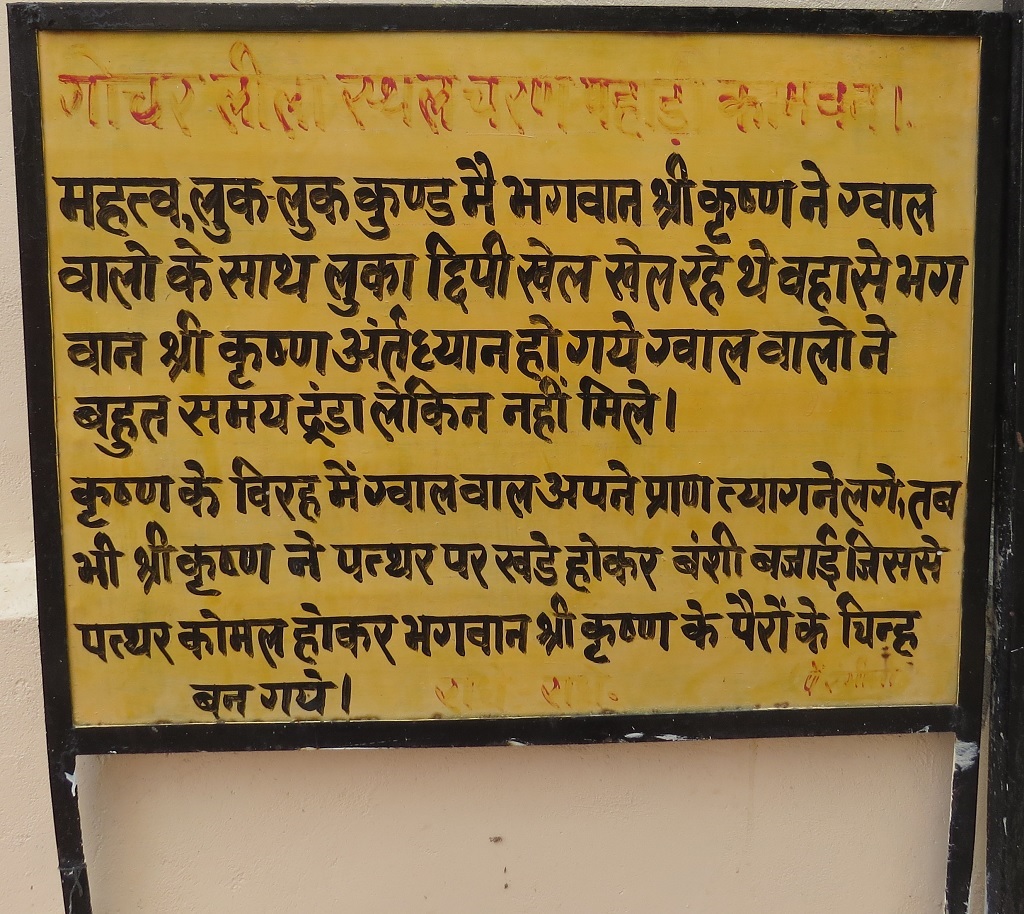 गोचर लीला स्थल चरण पहाड़ी कामवन।
महत्व, लुक-लुक कुण्ड मै भगवान श्री कृष्ण ने ग्वाल
वालो के साथ लुका छिपी खेल खेल रहे थे वहा से भग
वान श्री कृष्ण अंर्तध्यान हो गये ग्वाल वालो ने
बहुत समय ढूंडा लेकिन नहीं मिले।
कृष्ण के विरह में ग्वाल वाल अपने प्राण त्यागने लगे, तब
भी श्री कृष्ण ने पत्थर पर खडे होकर बंशी बजाई जिससे
पत्थर कोमल होकर भगवान श्री कृष्ण के पैरों के चिन्ह
बन गये।